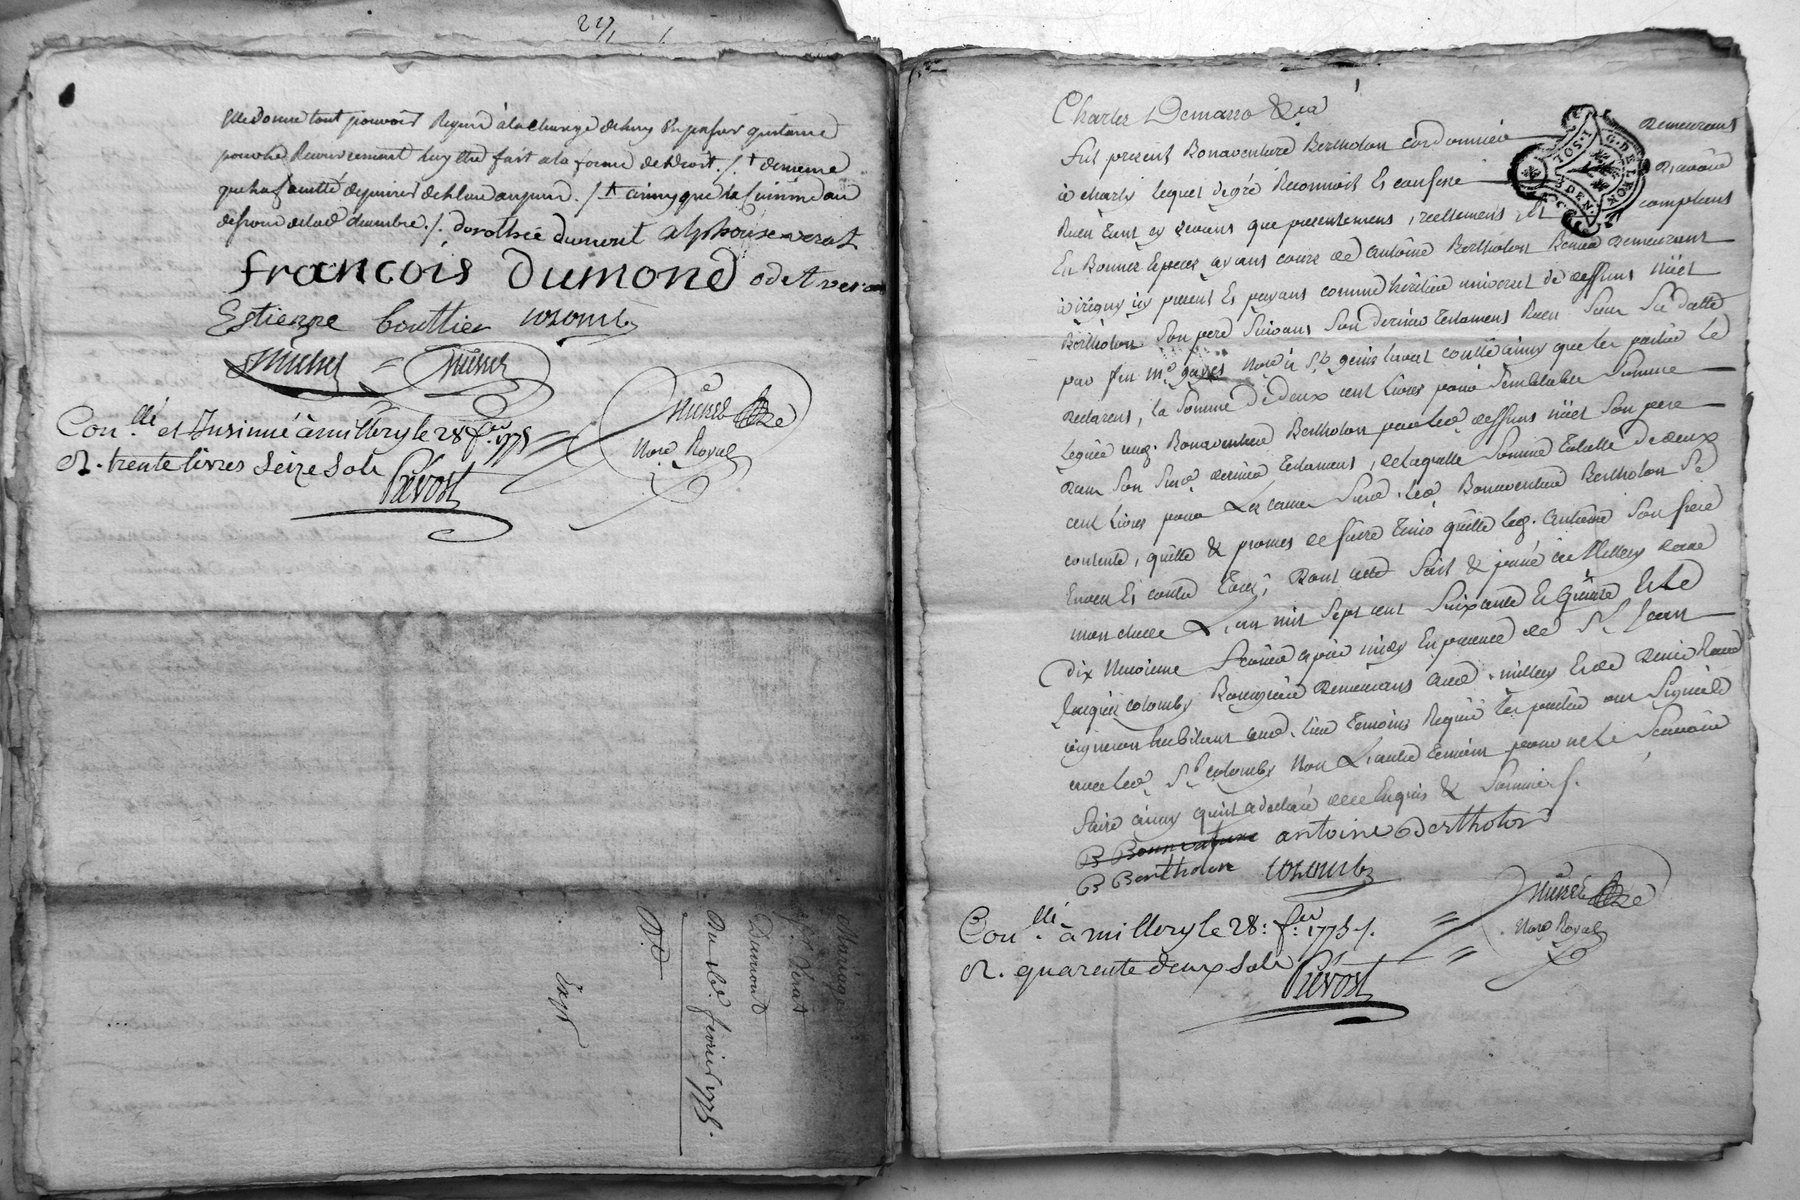 24
Elle donne tout pouvoir Requis à la charge
pour le Recouvrement luy être fait a la forme de Droit ./. t de meme
que la faculté
de ce mois decembre ./. dorothée dumont alphonse verat
françois dumond odet vera
Estienne Gouttier colomb
Munet = Munet
Con.llé et Insinué à millery le 28 f.er 1775
R. trente livres seize sols
Prévost
Munet
No.re Royal
Mariage
Verat
Dumond
Du 16e. fevrier 1775.
Exp.é
Charles Demarro &ca
fut present Bonaventure Bertholon cordonnier demeurant
à charly lequel de gré Reconnoit Et confesse avoir
Reçu tant cy devant que presentement, reellement et comptant
En Bonnes Especes ayant cours de antoine Bertholon demeurant
à irigny icy present Et payant comme héritier universel de deffunt
Bertholon Son pere Suivant Son dernier testament Reçu Sous Sa datte
par feu Me. No.re à St. genis laval controllé ainsy que les parties le
declarent, la Somme de deux cent livres pour Semblable Somme
Leguée aud. Bonaventure Bertholon par led. deffunt Son pere
dans Son Susd. dernier testament, de laquelle Somme totalle de deux
cent livres pour Les causes Susd. led. Bonaventure Bertholon Se
contente, quitte & promet de faire tenir quitte led. antoine Son frere
Envers Et contre tous; Dont acte fait & passé à Millery dans
mon étude L'an mil Sept cent Soixante Et quinze Et le
dix Neuvieme fevrier apres midy En presence de Sr. Jean
Jacques colomb Bourgeois demeurant aud. millery Et de
vigneron habitant aud. lieu temoins Requis les parties ont Signé
avec led. Sr. colomb Non L'autre temoin pour ne le Scavoir
faire ainsy qu'il a declaré de ce Enquis & Sommé
B Bonnavature antoine Bertholon
B Bertholon colomb
Munet
No.re Royal
Con.llé à millery le 28: f.er: 1775 ./.
R. quarente deux sols
Prévost
G. DE LYON
1 SOL
3 DEN.